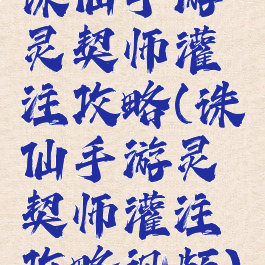 诛仙手游
灵契师灌
注攻略(诛
仙手游灵
契师灌注
攻略视频)